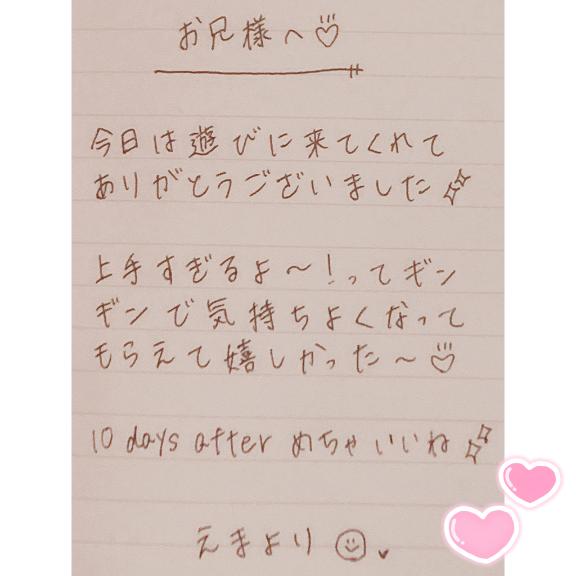 お兄様へ♡
今日は遊びに来てくれて
ありがとうございました✨
上手すぎるよ〜!ってギン
ギンで気持ちよくなって
もらえて嬉しかった〜♡
10 days after めちゃいいね✨
えまより☺♥